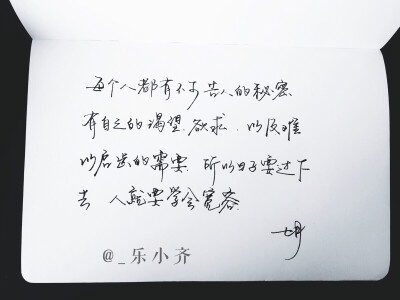 每个人都有不可告人的秘密
有自己的渴望、欲求、以及难
以启齿的需要 所以日子要过下
去 人就要学会宽容
@_乐小齐